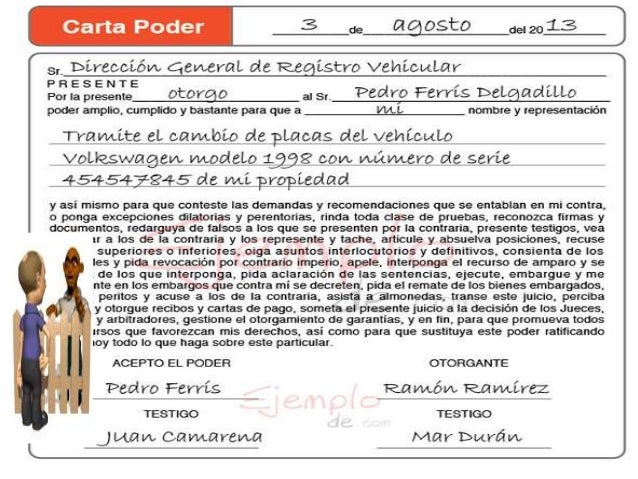 Carta Poder 3 de agosto del 2013
Sr. Dirección General de Registro Vehicular
PRESENTE
Por la presente otorgo al Sr. Pedro Ferrís Delgadillo
poder amplio, cumplido y bastante para que a mi nombre y representación
Tramite el cambio de placas del vehículo
Volkswagen modelo 1998 con número de serie
454547845 de mi propiedad
y así mismo para que conteste las demandas y recomendaciones que se entablan en mi contra,
o ponga excepciones dilatorias y perentorias, rinda toda clase de pruebas, reconozca firmas y
documentos, redarguya de falsos a los que se presenten por la contraria, presente testigos, vea
ar a los de la contraria y los represente y tache, articule y absuelva posiciones, recuse
superiores o inferiores, oiga asuntos interlocutorios y definitivos, consienta de los
les y pida revocación por contrario imperio, apele, interponga el recurso de amparo y se
de los que interponga, pida aclaración de las sentencias, ejecute, embargue y me
nte en los embargos que contra mí se decreten, pida el remate de los bienes embargados,
peritos y acuse a los de la contraria, asista a almonedas, transe este juicio, perciba
y otorgue recibos y cartas de pago, someta el presente juicio a la decisión de los Jueces,
y arbitradores, gestione el otorgamiento de garantías, y en fin, para que promueva todos
ursos que favorezcan mis derechos, así como para que sustituya este poder ratificando
hoy todo lo que haga sobre este particular.
ACEPTO EL PODER OTORGANTE
Pedro Ferrís Ramón Ramírez
Ejemplo
de.com
TESTIGO TESTIGO
Juan Camarena Mar Durán